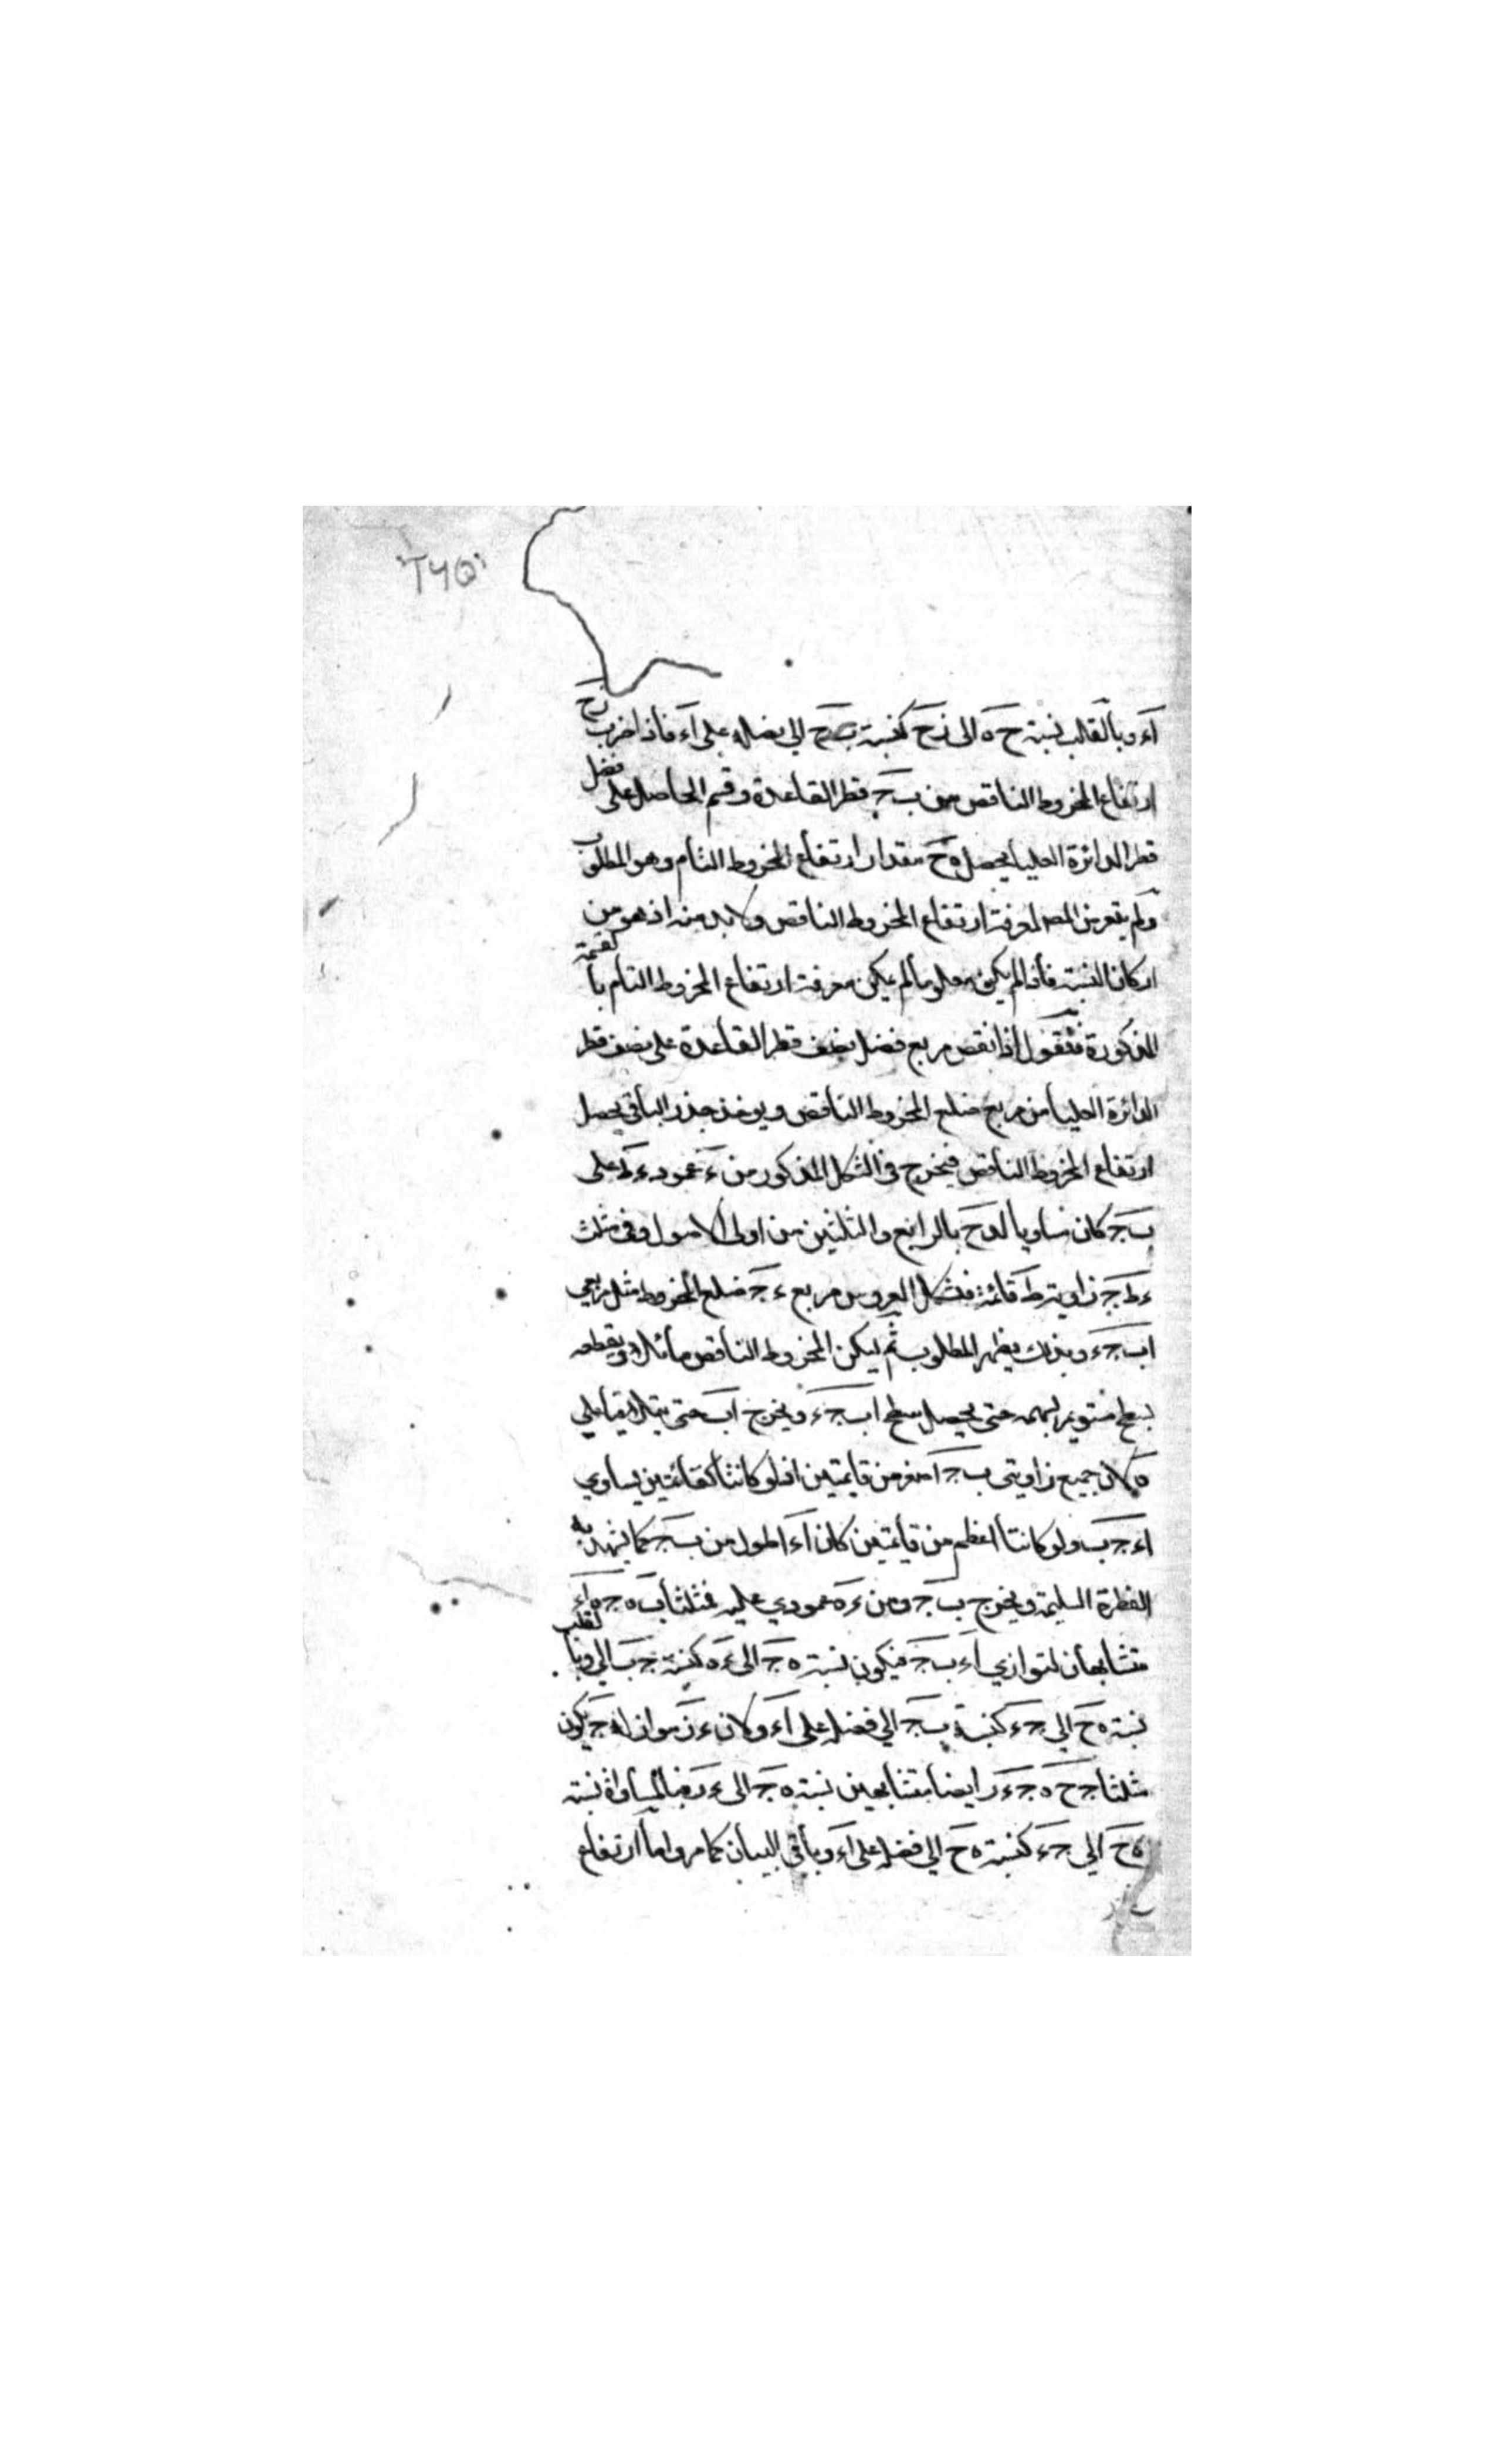 ٢٦٥
اَء وبالقلب نسبة ح ه الى زح كنسبة ب ج الي فضله على اَء فاذا ضرب زح
ارتفاع المخروط الناقص في ب ج قطر القاعدة وقسم الحاصل على فضل
قطر الدائرة العليا يحصل ه ح مقدار ارتفاع المخروط التام وهو المطلوب
ولم يتعرض المصـ لمعرفة ارتفاع المخروط الناقص ولابد منه اذ هو من
اركان النسبة فاذا لم يكن معلوما لم يكن معرفة ارتفاع المخروط التام بالقسمة
المذكورة فنقول اذا نقص مربع فضل نصف قطر القاعدة على نصف قطر
الدائرة العليا من مربع ضلع المخروط الناقص ويوخذ جذر الباقي يحصل
ارتفاع المخروط الناقص فيخرج في الشكل المذكور من ء عمود ء ط على
ب ج كان مساويا لـ وح بالرابع والثلثين من اولى الاصول وفي مثلث
ء ط ج زاوية ط قائمة فبشكل العروس مربع ء ج ضلع المخروط مثل مربعي
اب ج ء وبذلك يظهر المطلوب ثم ليكن المخروط الناقص مائلا ويقطعه
بسطح مستو بسهمه حتى يحصل سطح اب ج ء ويخرج اب حتى يتلاقيا على
ه لان جميع زاويتي ب ج اصغر من قايمتين اذ لو كانتا كقائمتين يساوي
اء ج ب ولو كانتا اعظم من قايمتين كان اَء اطول من ب ج كما يشهد به
الفطرة السليمة ويخرج ب ج ومن ء ه عمودي عليه فمثلثا ب ه ج ه اء
متشابهان لتوازي اء ب ج فيكون نسبة ه ج الى ء ه كنسبة ج ب الي وبالقلب
نسبة ه ح الي ج ء كنسبة ب ج الي فضله على اَء ولان ء ز مواز له ج يكون
مثلثا ج ح ه ج ء ز ايضا متشابهين نسبة ه ج الى ء فبالمساواة نسبة
ه ح الي ج ء كنسبة ه ح الي فضله على اَء وباقي البيان كما مر واما ارتفاع